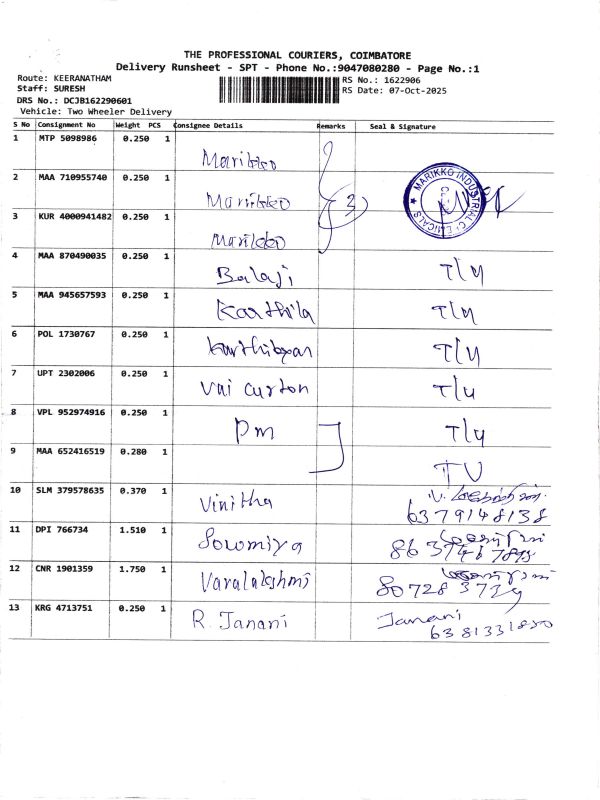 THE PROFESSIONAL COURIERS, COIMBATORE
Delivery Runsheet - SPT - Phone No.:9047080280 - Page No.:1
Route: KEERANATHAM
RS No.: 1622906
Staff: SURESH
RS Date: 07-Oct-2025
DRS No.: DCJB162290601
Vehicle: Two Wheeler Delivery
S No Consignment No Weight PCS Consignee Details Remarks Seal & Signature
1 MTP 5098986 0.250 1 Marikko
2 MAA 710955740 0.250 1 Marikko (3) MARIKKO INDUSTRIAL CHEMICALS
3 KUR 4000941482 0.250 1 Marikko
4 MAA 870490035 0.250 1 Balaji T/y
5 MAA 945657593 0.250 1 Karthika T/y
6 POL 1730767 0.250 1 T/y
7 UPT 2302006 0.250 1 T/y
8 VPL 952974916 0.250 1 Pm T/y
9 MAA 652416519 0.280 1 TV
10 SLM 379578635 0.370 1 Vinitha 6379148138
11 DPI 766734 1.510 1 Sowmiya
12 CNR 1901359 1.750 1 Varalakshmi
13 KRG 4713751 0.250 1 R. Janani Janani